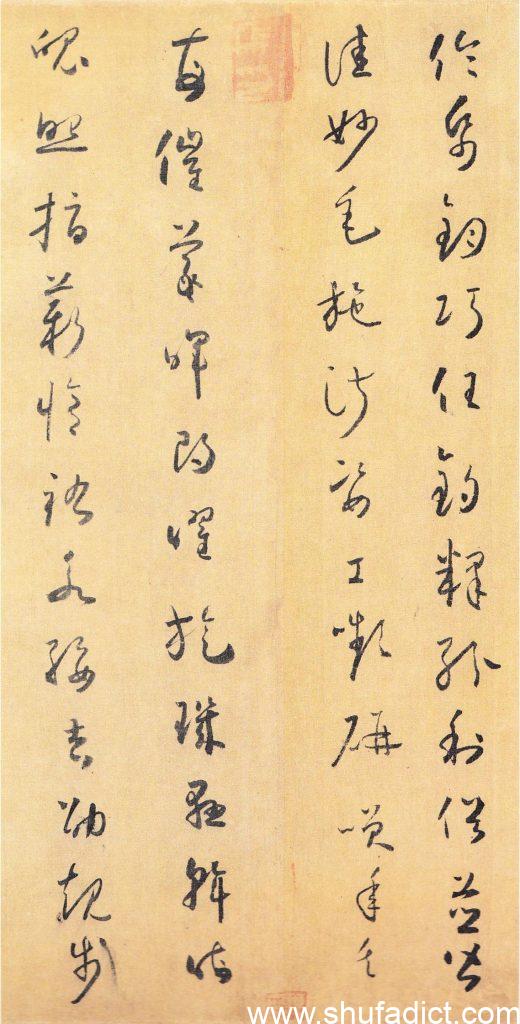 倫帋鈞巧任釣釋紛利俗並皆
佳妙毛施淑姿工嚬妍咲年矢
每催羲暉朗曜旋璣懸斡晦
魄照指薪脩祜永綏吉劭矩步
www.shufadict.com